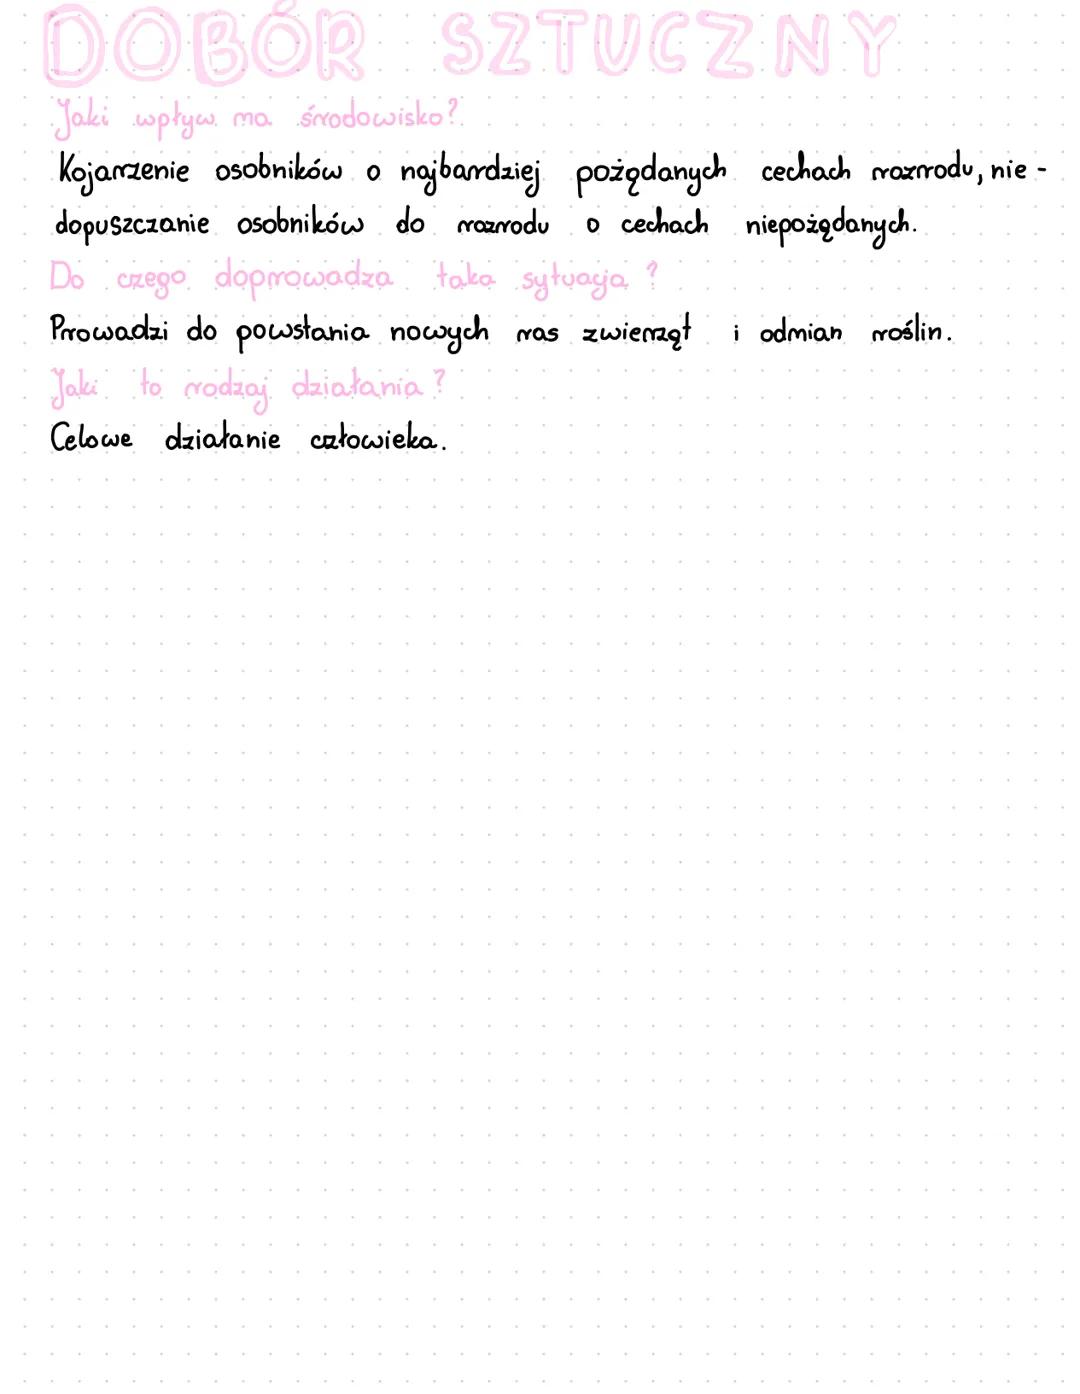 DOBÓR SZTUCZNY
Jaki wpływ ma środowisko?
Kojarzenie osobników o najbardziej pożądanych cechach rozrodu, nie-
dopuszczanie osobników do rozrodu o cechach niepożądanych.
Do czego doprowadza taka sytuacja?
Prowadzi do powstania nowych ras zwierząt i odmian roślin.
Jaki to rodzaj działania?
Celowe działanie człowieka.